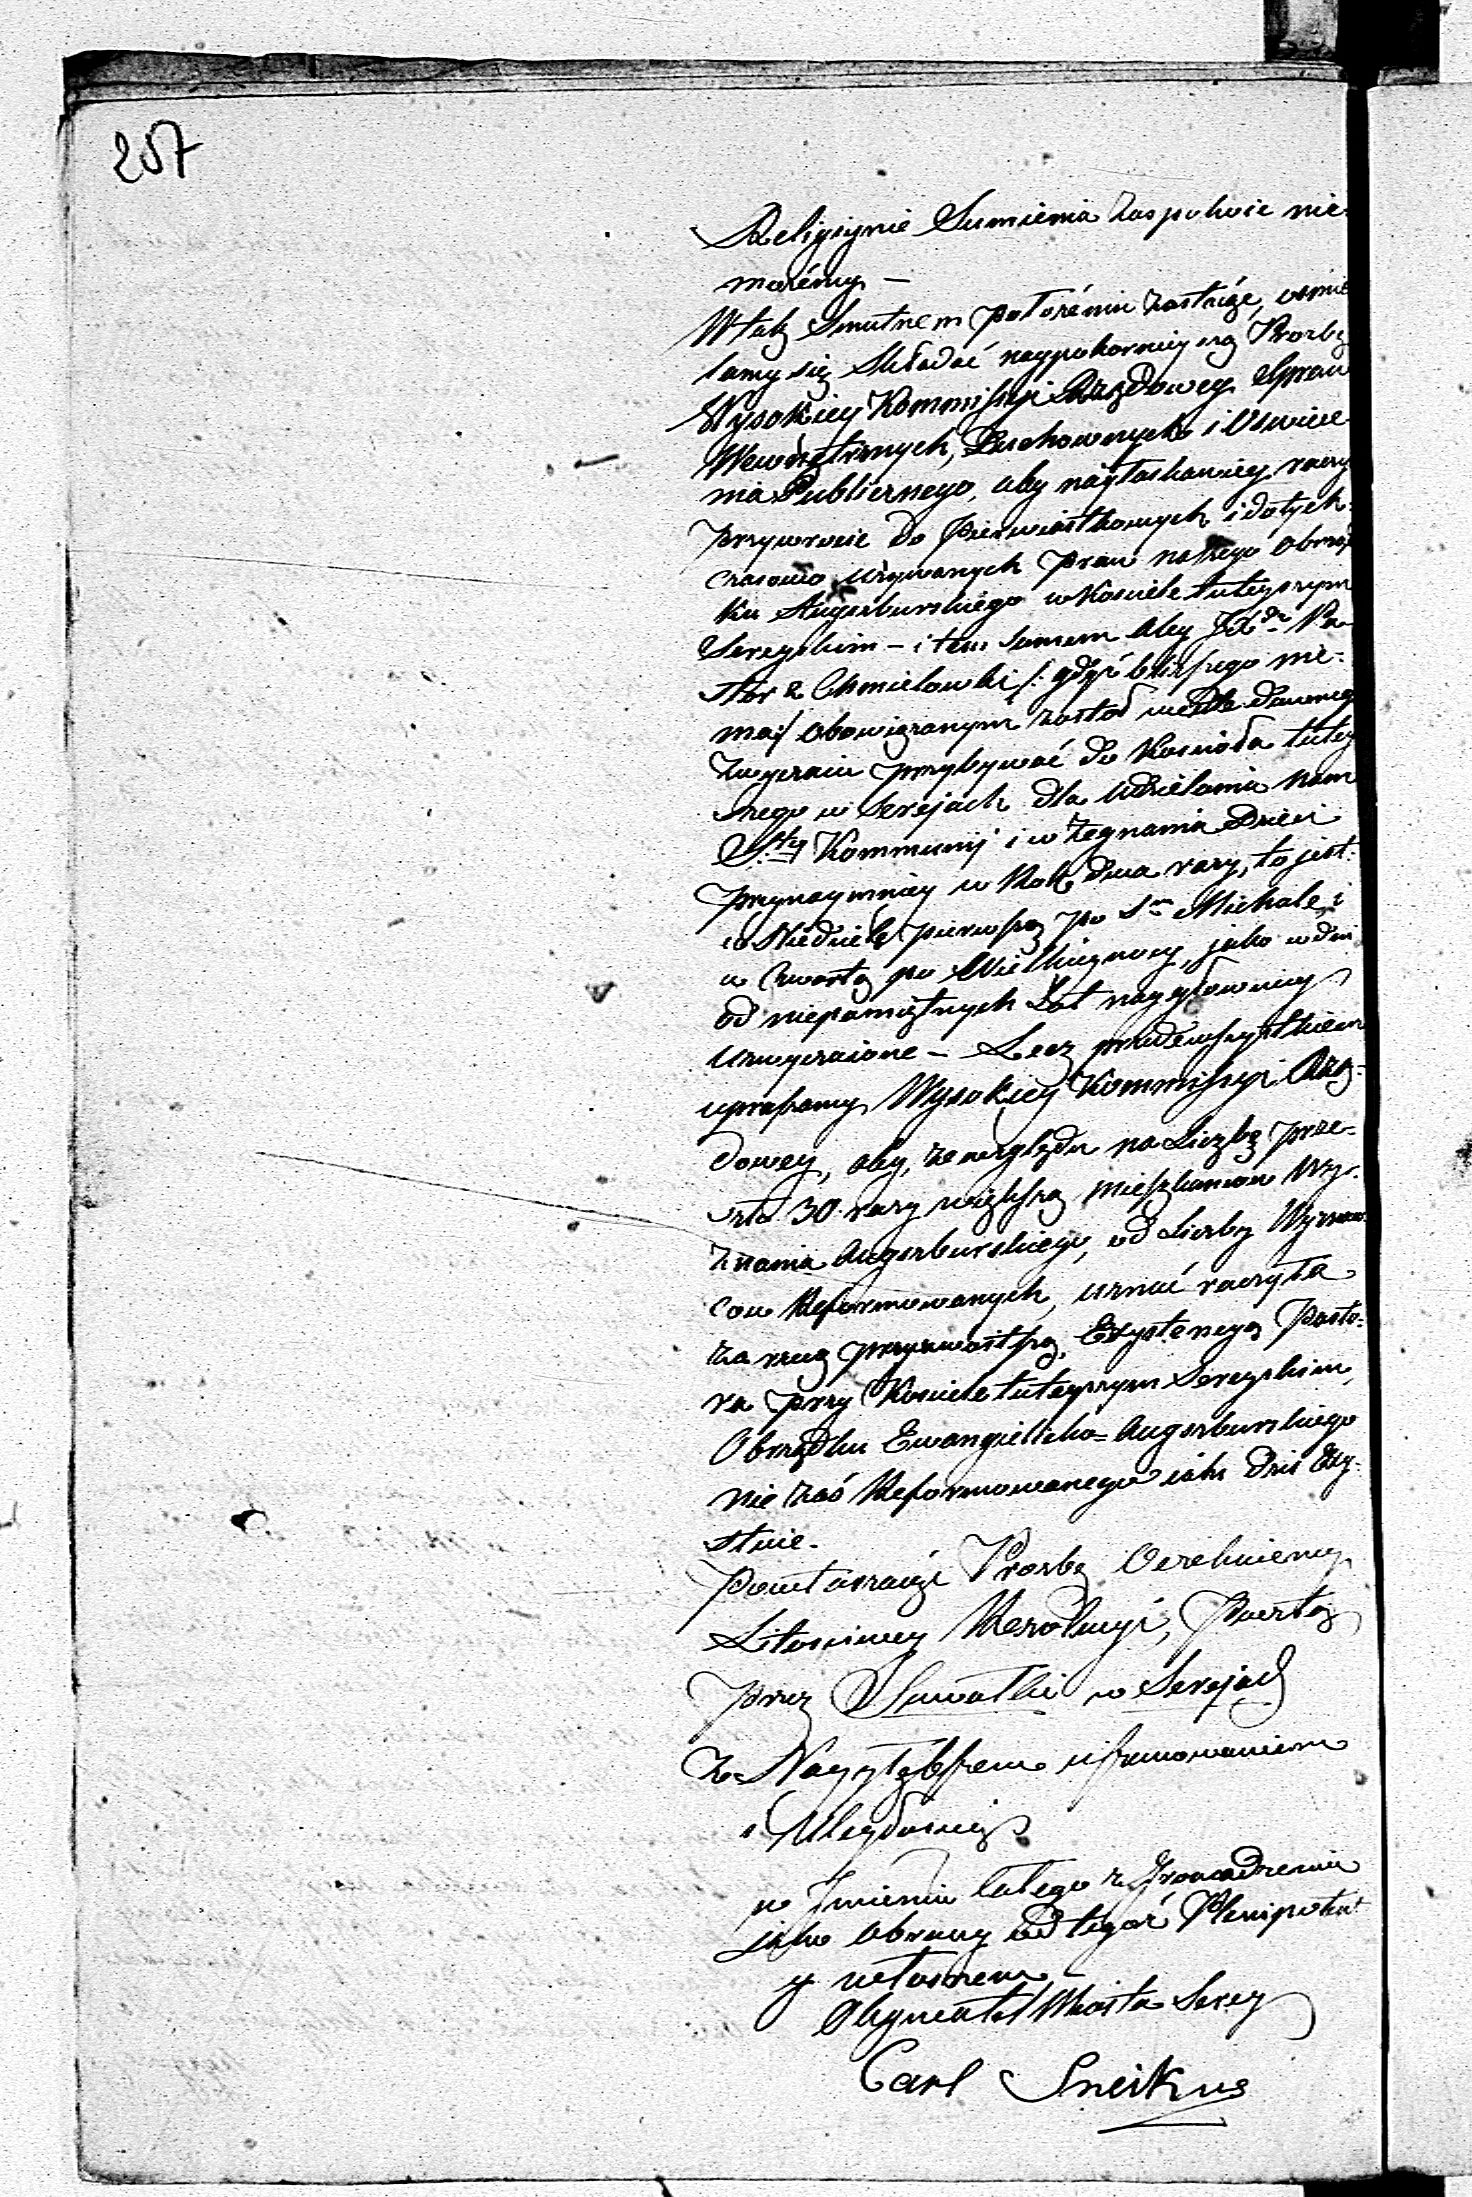 257
Religiynie Sumienia zaspokoic nie
możemy –
W tak Smutnem położeniu zostaiąc, osmie
lamy się Składać naypokornieyszą Prozbę
Wysokiey Kommissyi Rządowey Spraw
Wewnętrznych, Duchownych i Oswiece
nia Publicznego, aby nayłaskawiey raczy
przywrocic do pierwiastkowych i dotych-
czasowo używanych praw naszego obrząd
ku Augsburskiego w Kosciele tuteyszym
Sereyskim – i tem samem aby Pa-
stor z Chmielowki /: gdyż bliższego nie-
ma/ obowiązanym został wedle dawnego
zwyczaiu przybywać do Kosciola tutey
szego w Serejach dla udzielania nam
S.tey Kommunij i w żegnania Dzieci
przynaymniey w Rok dwa razy, to jest:
w Niedzielę pierwszą po S.m Michale i
w czwartą po Wielkieynocy, jako w dni
od niepamiętnych Lat
uzwyczaione – Lecz przedewszystkiem
upraszamy Wysokiey Kommissyi Rzą-
dowey, aby, ze względu na Liczbę prze-
szło 30 razy większą Mieszkancow Wy-
znania Augsburskiego, od Liczby Wyznaw
cow Reformowanych, uznać raczyła
za rzecz przyzwoitszą, Exystencyą Pasto-
ra przy Kosciele tuteyszym Sereyskim,
Obrządku Ewangielicko-Augsburskiego
nie zaś Reformowanego iak dziś Exy-
stuie.
Powtarzaiąc Prozbę Oczekuiemy
Litosciwey Rezolucyi, Pocztą
przez Suwałki w Serejach
z Naygłębszem uszanowaniem
i Uległoscią
w Imieniu całego Zgromadzenia
jako obrany od tegoż Plenipotent
y własnem
Obywatel Miasta Serey
Carl Sneikus